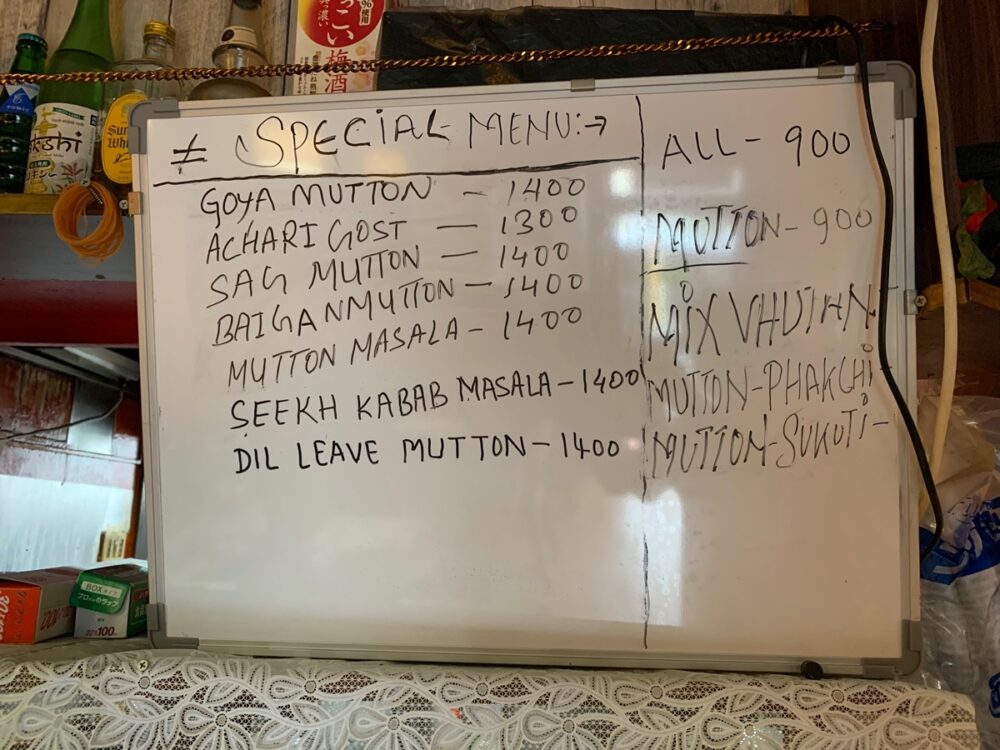 ≠ SPECIAL MENU:→
GOYA MUTTON - 1400
ACHARI GOST — 1300
SAG MUTTON — 1400
BAIGANMUTTON — 1400
MUTTON MASALA - 1400
SEEKH KABAB MASALA - 1400
DIL LEAVE MUTTON - 1400
ALL - 900
MUTTON - 900
MIX VHUTAN -
MUTTON-PHAKCHI -
MUTTON-SUKUTI -
梅酒
BOXタイプ
100